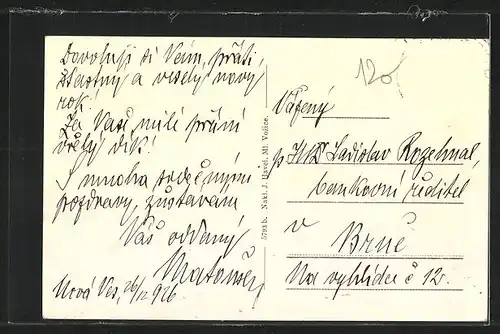 Dovoluji si Vám, přáti
šťastný a veselý nový
rok!
Za Vaše milé přání
vřelý dík!
S mnoha srdečnými
pozdravy, zůstávám
Váš oddaný
Nová Ves, 26/12 926
5793 b. Nakl. J. Havel, Ml. Vožice.
120
Vážený
p Ladislav Rozehnal,
bankovní ředitel
v
Brně
Na vyhlídce č 12.